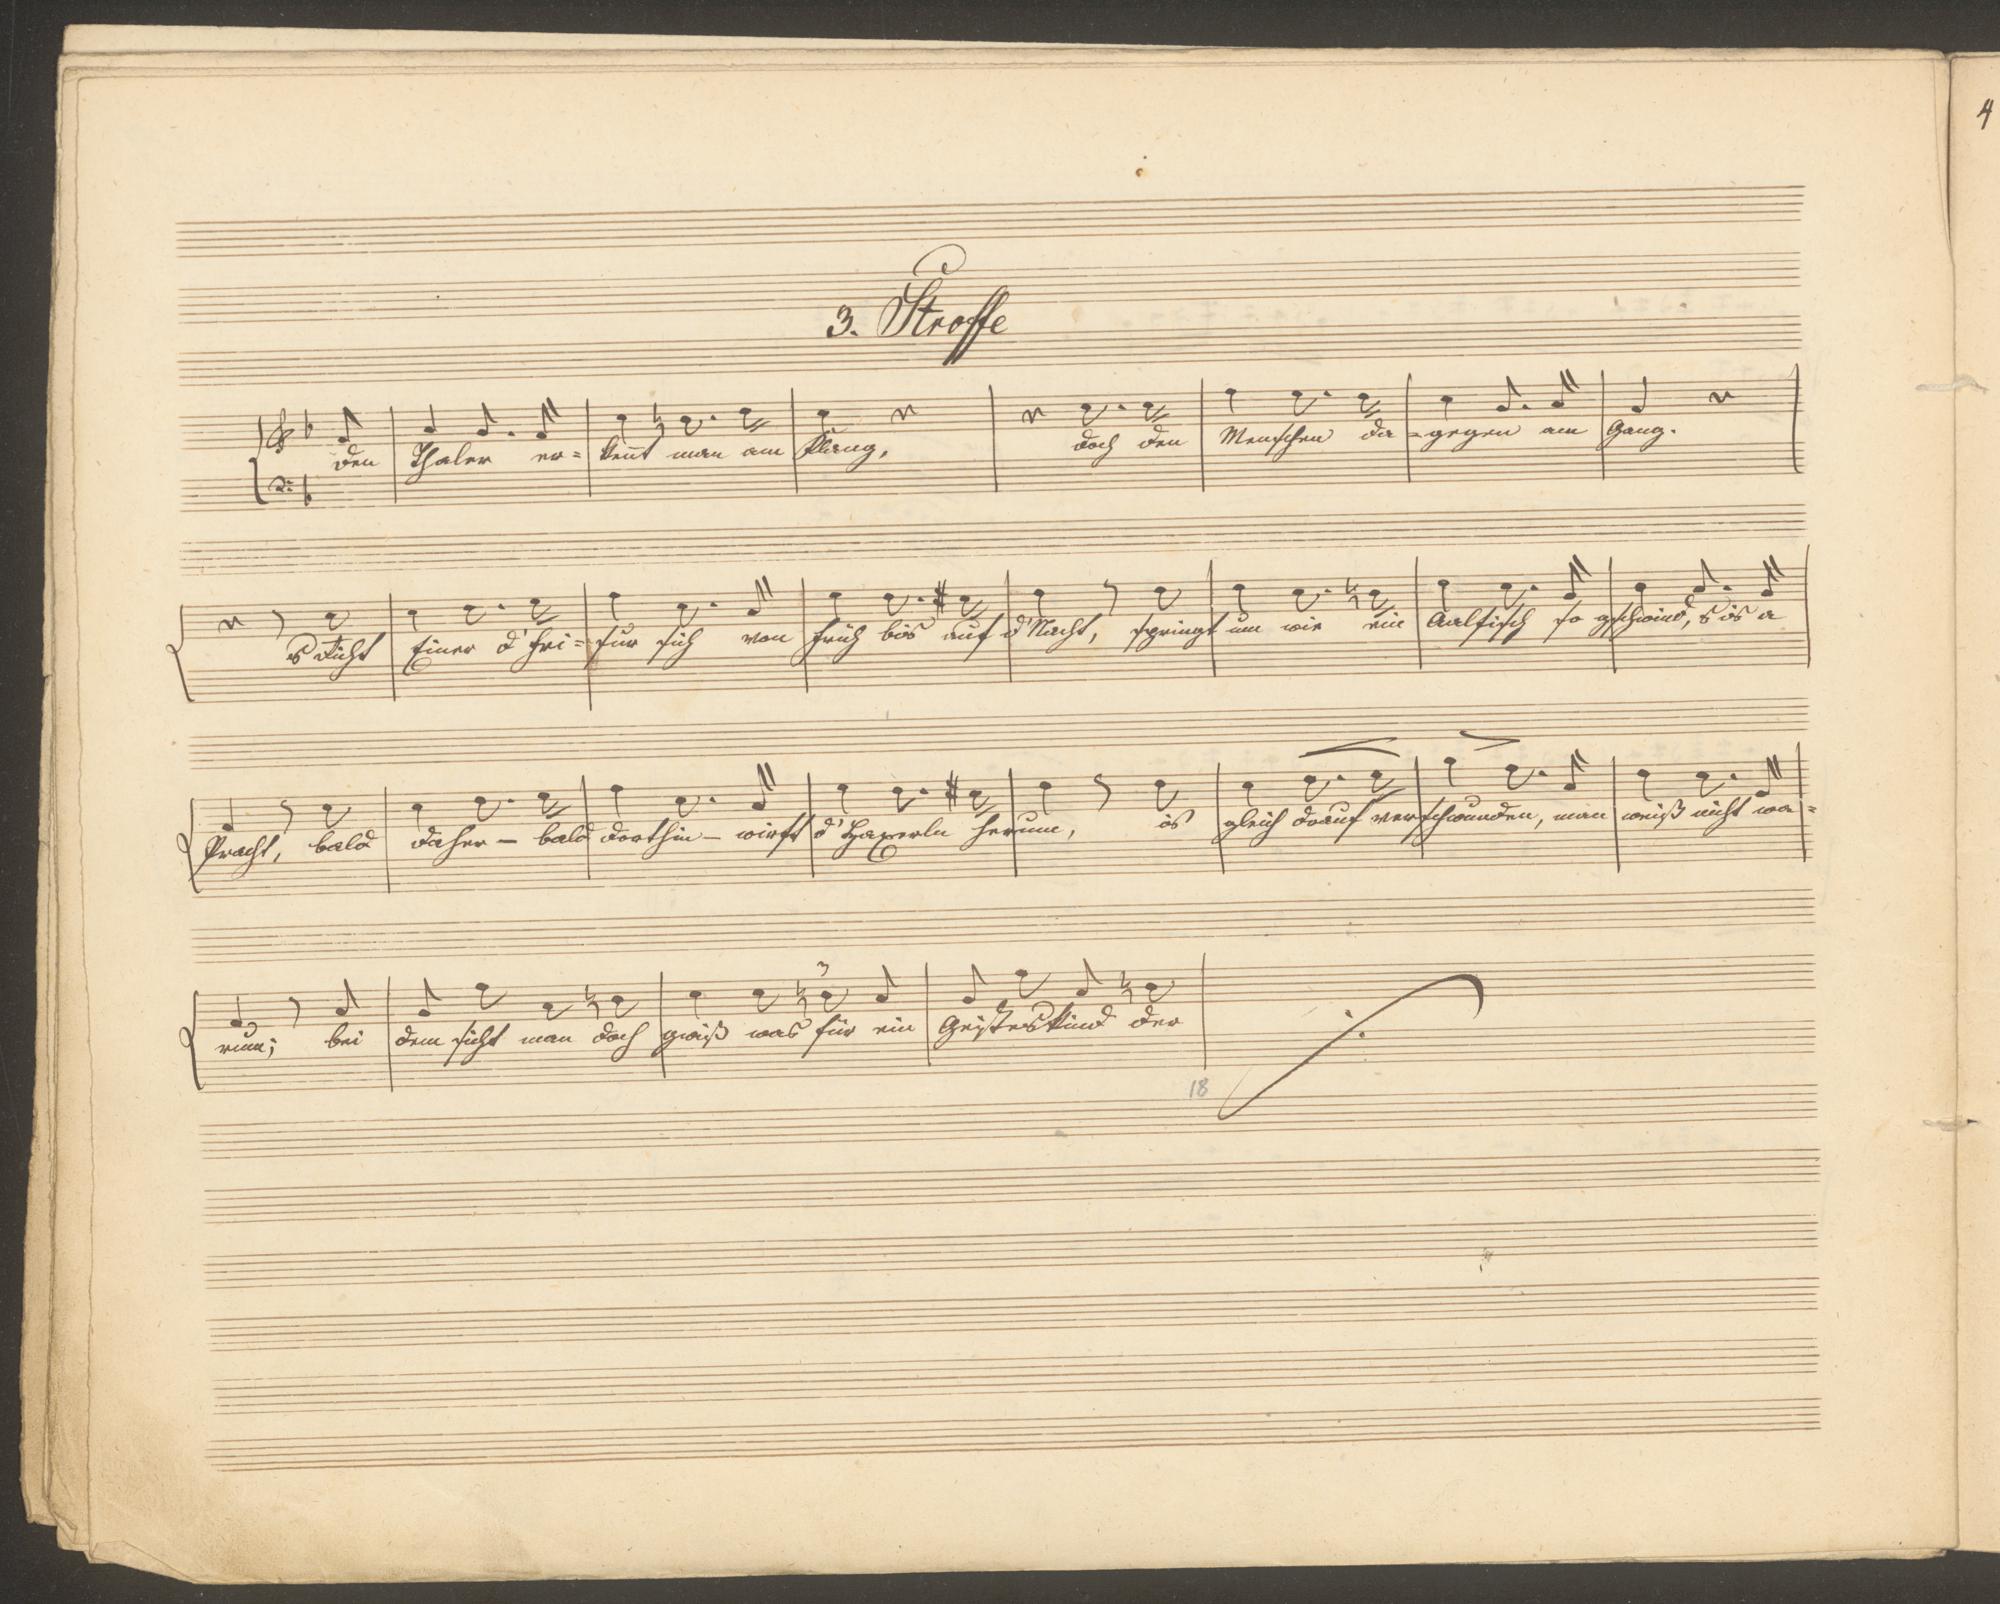 4
3. Stroffe
den Thaler er= kent man am Klang, doch den Menschen da =gegen am Gang.
s Einer d' Fri= sur sich von früh bis auf d'Nacht, springt um wie ein Aalfisch so gschwind, s is a
Pracht, bald daher – bald dorthin – wirft d'Haxerln herum, is gleich drauf verschwunden, man weiß nicht wa=
rum; bei dem sieht man doch gwiß was für ein Geisteskind der
18